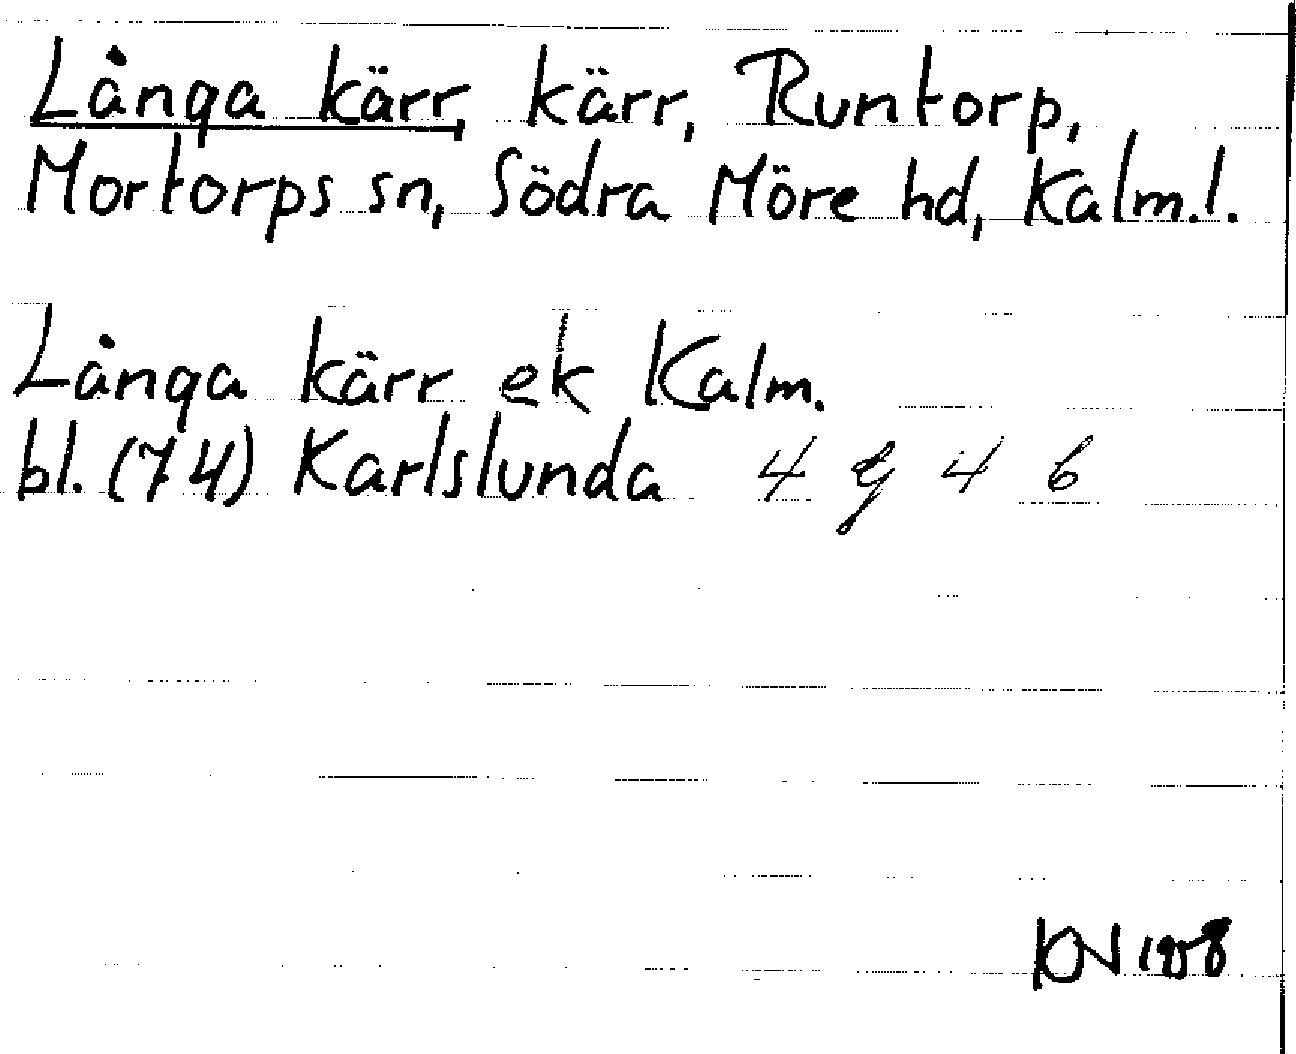 Långa kärr, kärr, Runtorp,
Mortorps sn, Södra Möre hd, Kalm.l.
Långa kärr ek Kalm.
bl. (74) Karlslunda 4 g 4 b